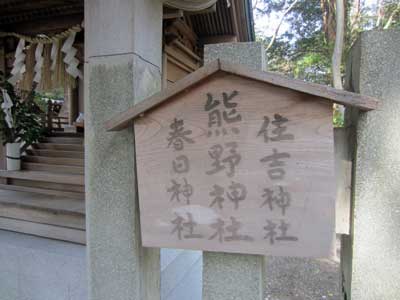 住吉神社
熊野神社
春日神社